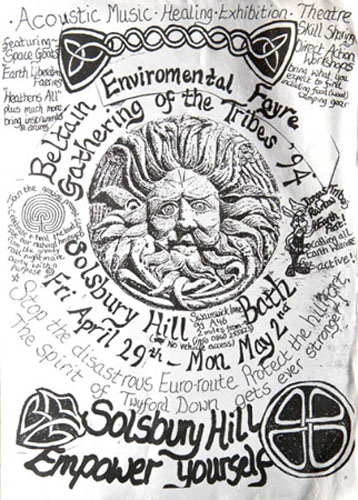 Acoustic Music · Healing · Exhibition · Theatre
Skill Sharing
Direct Action
Workshops
bring what you
expect to find
including food (kitchen)
camping gear
Featuring -
Space Goats
Earth Liberation
Faeries
Heathens All
plus much more
bring instruments
& drums
Enviromental Fayre
Beltain Gathering of the Tribes '94
Join the
celebrate + heal the land
our natural heritage
nightmare
with a
purpose
calling all
Earth Warriors
Get active!
Solsbury Hill Bath
Swainswick lane
off A46
2 miles from
(no vehicle access)
Fri April 29th - Mon May 2nd
Stop the disastrous Euro-route Protect the hillfort,
The Spirit of Twyford Down gets ever stronger!
Solsbury Hill
Empower yourself